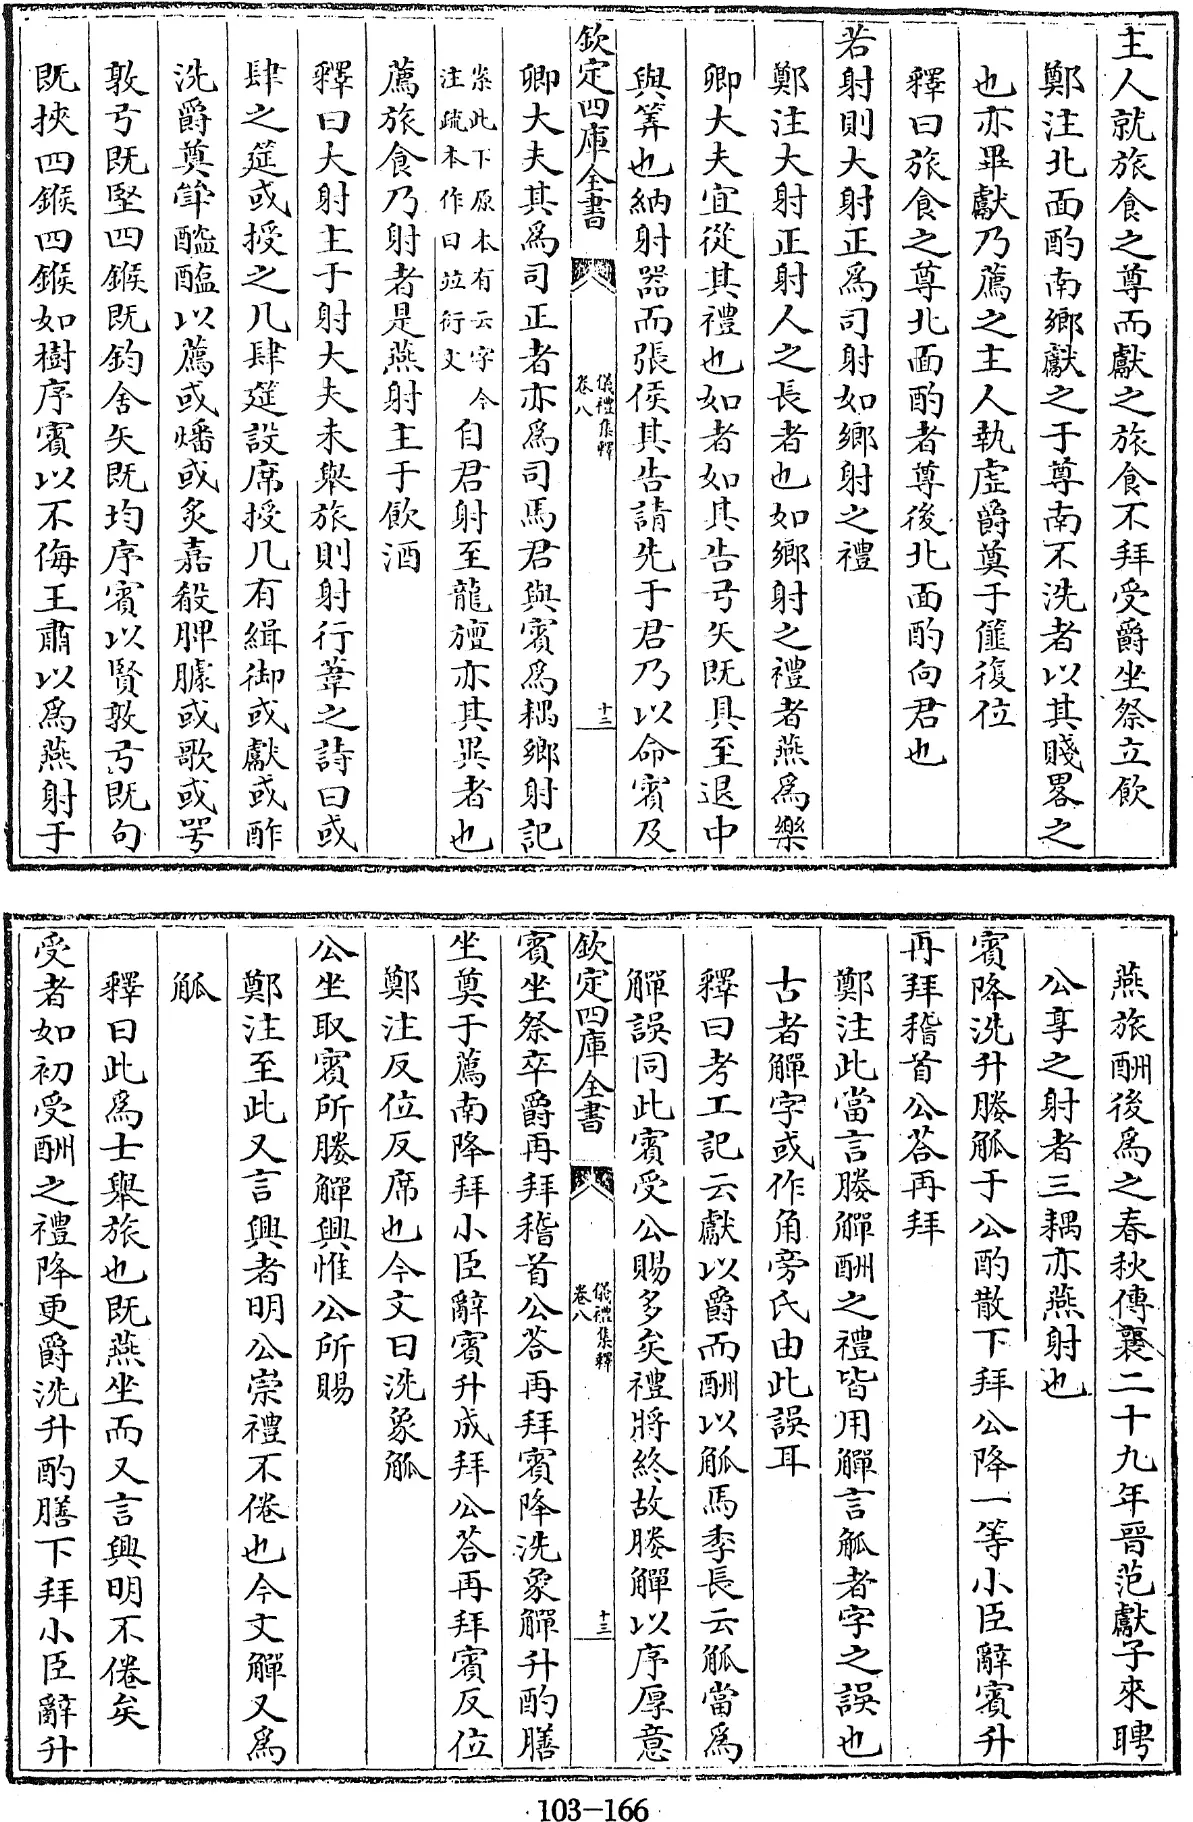 主人就旅食之尊而獻之旅食不拜受爵坐祭立飲
鄭注北面酌南鄉獻之于尊南不洗者以其賤畧之
也亦畢獻乃薦之主人執虛爵奠于篚復位
釋曰旅食之尊北面酌者尊後北面酌向君也
若射則大射正為司射如鄉射之禮
鄭注大射正射人之長者也如鄉射之禮者燕為樂
卿大夫宜從其禮也如者如其告弓矢既具至退中
與筭也納射器而張侯其告請先于君乃以命賓及
欽定四庫全書
儀禮集釋
卷八
十二
卿大夫其為司正者亦為司馬君與賓為耦鄉射記
案此下原本有云字今
注疏本作曰竝衍文
自君射至龍旜亦其異者也
薦旅食乃射者是燕射主于飲酒
釋曰大射主于射大夫未舉旅則射行葦之詩曰或
肆之筵或授之几肆筵設席授几有緝御或獻或酢
洗爵奠斝醓醢以薦或燔或炙嘉殽脾臄或歌或咢
敦弓既堅四鍭既鈞舍矢既均序賓以賢敦弓既句
既挾四鍭四鍭如樹序賓以不侮王肅以為燕射于
燕旅酬後為之春秋傳襄二十九年晉范獻子來聘
公享之射者三耦亦燕射也
賓降洗升媵觚于公酌散下拜公降一等小臣辭賓升
再拜稽首公荅再拜
鄭注此當言媵觶酬之禮皆用觶言觚者字之誤也
古者觶字或作角旁氏由此誤耳
釋曰考工記云獻以爵而酬以觚馬季長云觚當為
觶誤同此賓受公賜多矣禮將終故媵觶以序厚意
欽定四庫全書
儀禮集釋
卷八
十三
賓坐祭卒爵再拜稽首公荅再拜賓降洗象觶升酌膳
坐奠于薦南降拜小臣辭賓升成拜公荅再拜賓反位
鄭注反位反席也今文曰洗象觚
公坐取賓所媵觶興惟公所賜
鄭注至此又言興者明公崇禮不倦也今文觶又為
觚
釋曰此為士舉旅也既燕坐而又言興明不倦矣
受者如初受酬之禮降更爵洗升酌膳下拜小臣辭升
103-166